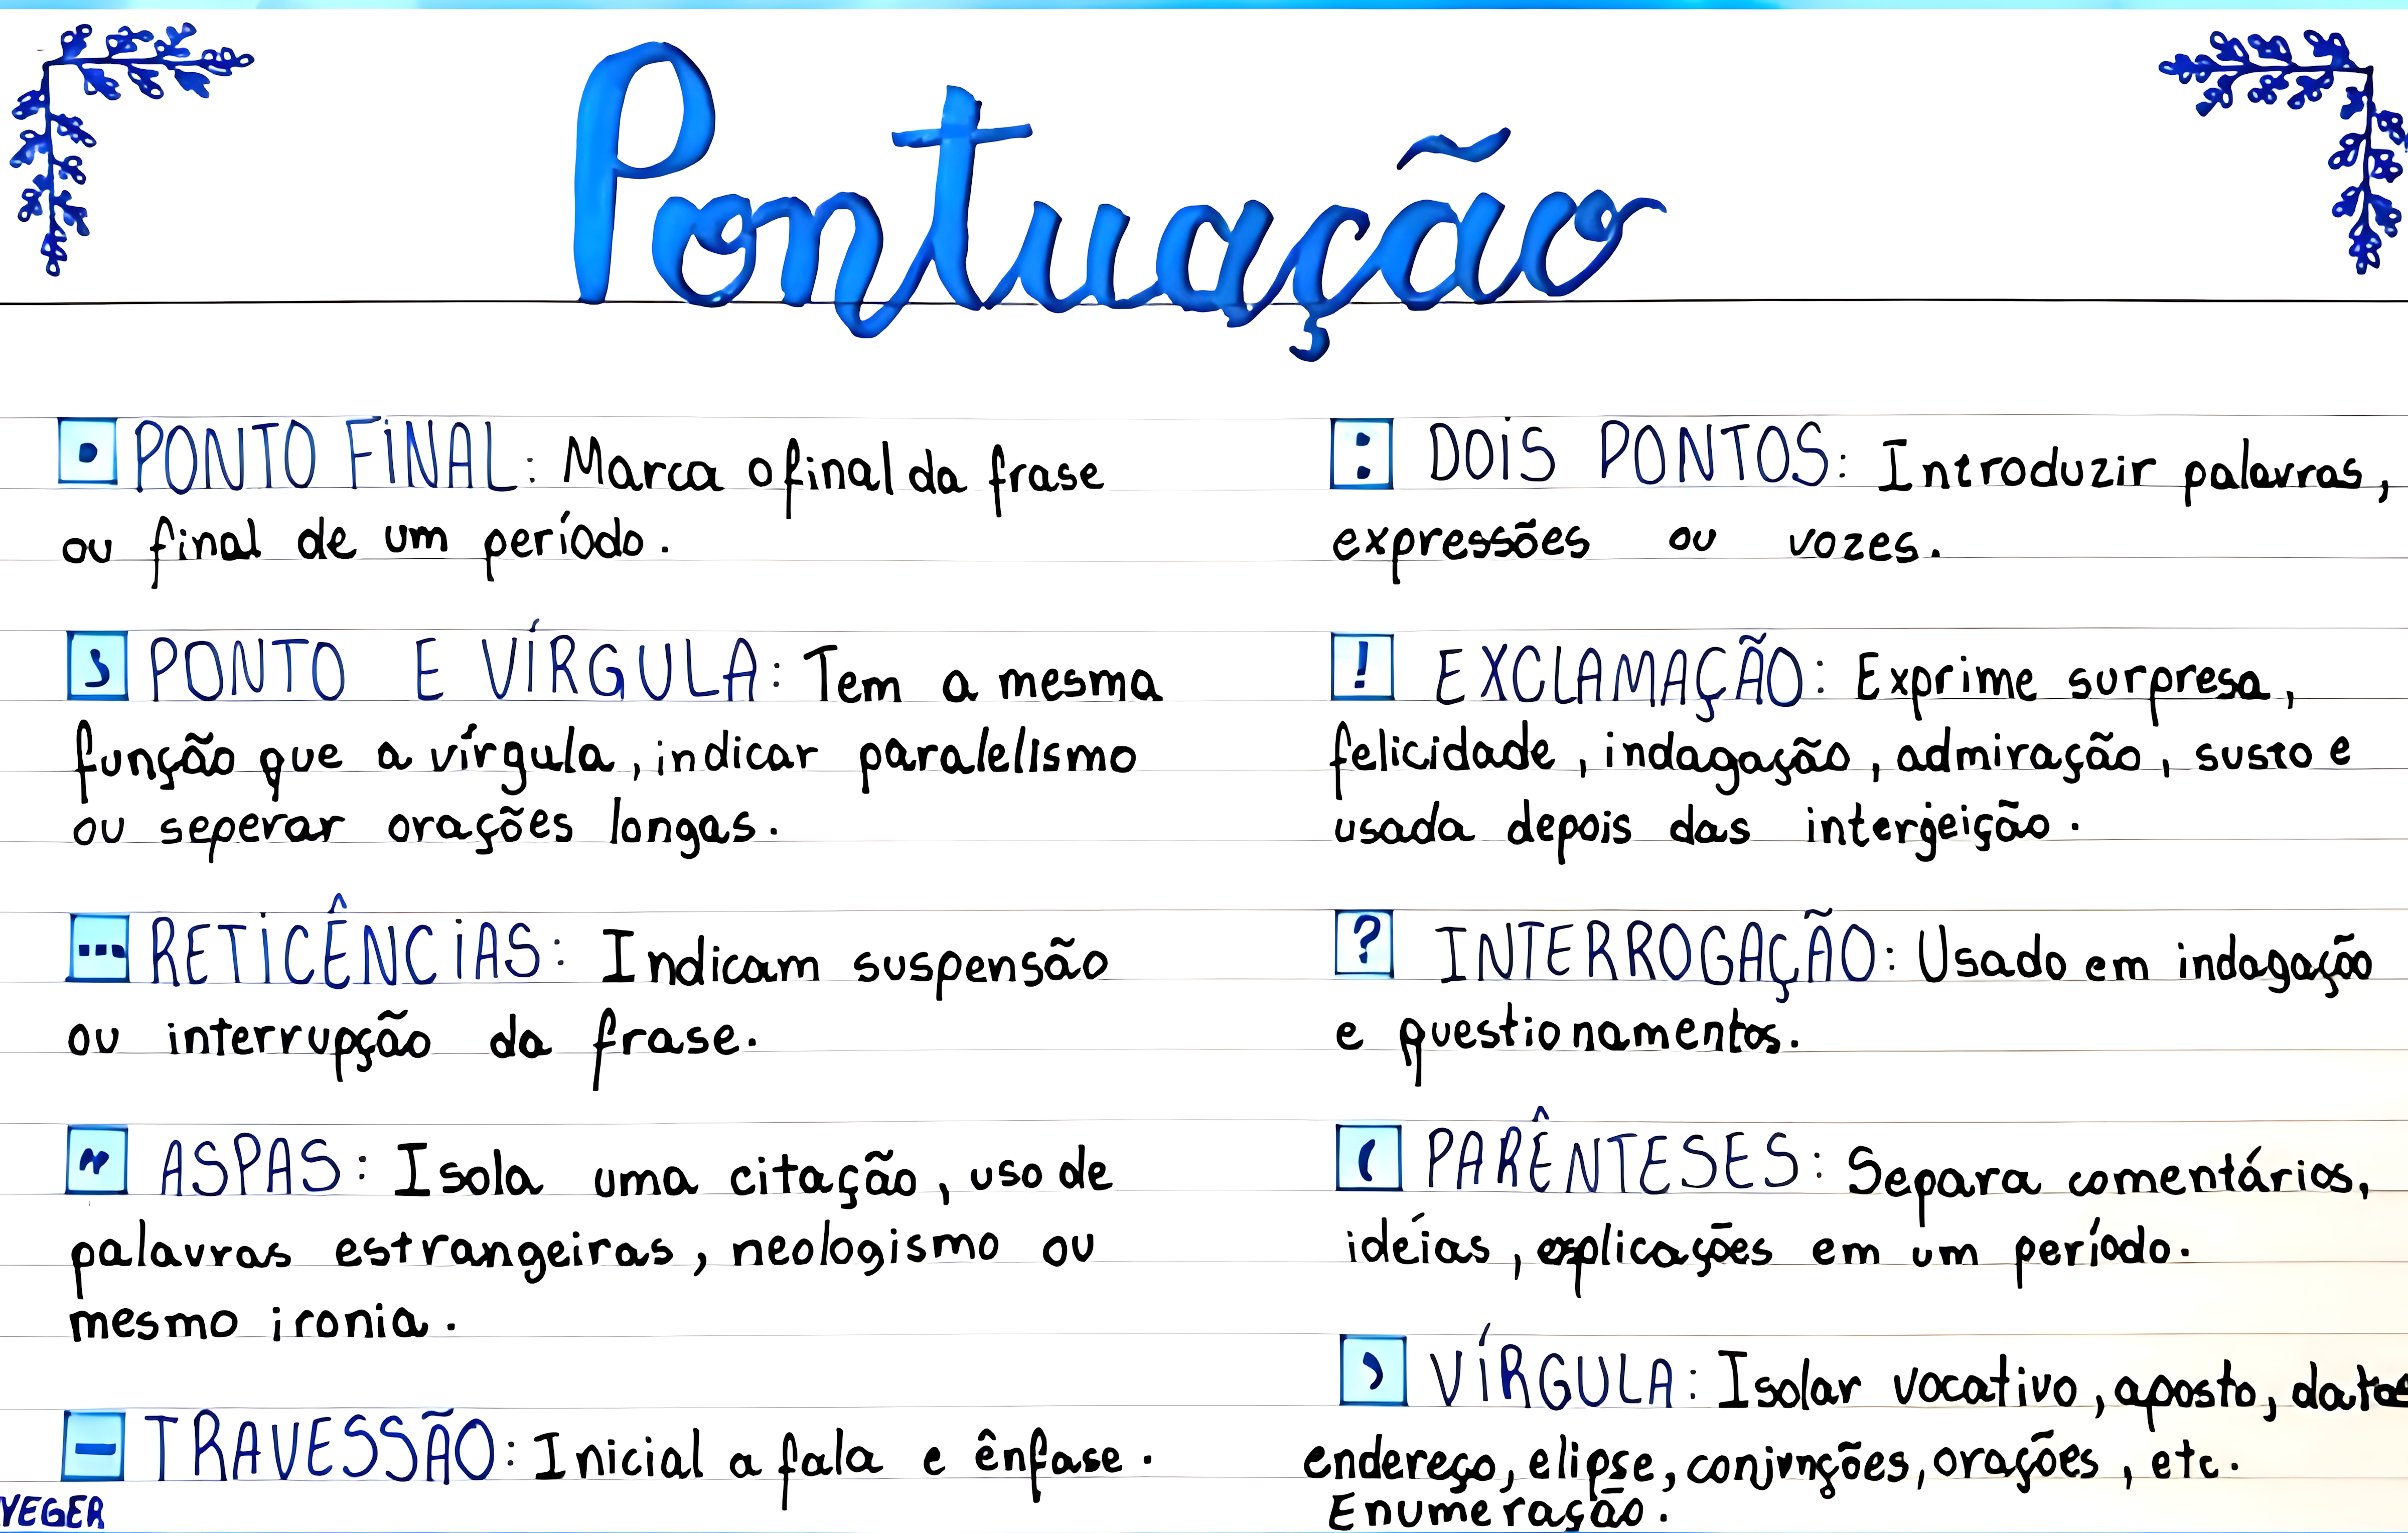 Pontuação
. PONTO FINAL: Marca o final da frase
ou final de um período.
; PONTO E VÍRGULA: Tem a mesma
função que a vírgula, indicar paralelismo
ou seperar orações longas.
... RETICÊNCIAS: Indicam suspensão
ou interrupção da frase.
" ASPAS: Isola uma citação, uso de
palavras estrangeiras, neologismo ou
mesmo ironia.
– TRAVESSÃO: Inicial a fala e ênfase.
YEGER
: DOIS PONTOS: Introduzir palavras,
expressões ou vozes.
! EXCLAMAÇÃO: Exprime surpresa,
felicidade, indagação, admiração, susto e
usada depois das intergeição.
? INTERROGAÇÃO: Usado em indagação
e questionamentos.
( PARÊNTESES: Separa comentários,
idéias, explicações em um período.
, VÍRGULA: Isolar vocativo, aposto, datas
endereço, elipse, conjunções, orações, etc.
Enumeração.